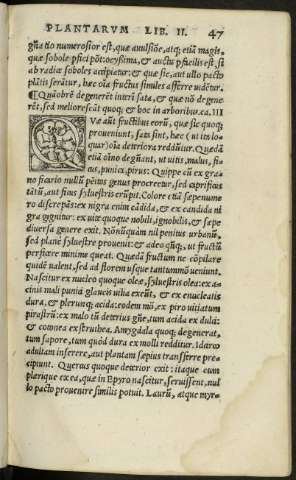 PLANTARVM LIB. II. 47
gña tio numerosior est, quæ auulsiõe, atq; etiã magis,
quæ sobole pfici põt: ocyßima, et auctu pfacilis est, si
ab radice soboles accipiatur: et quæ sic, aut ullo pacto
plãtis serũtur, hæc oĩa fructus similes afferre uidẽtur.
¶ Quãobrẽ degenerẽt interĩ sata, et quæ nõ degene
rẽt, sed meliorescãt quoq; et hoc in arboribus. ca. III
Væ aũt fructibus eorũ, quæ sic quoq;
proueniunt, sata sint, hæc (ut ita lo-
quar) oĩa deteriora reddũtur. Quædã
etiã oĩno degñant, ut uitis, malus, fi=
cus, punica, pirus. Quippe cũ ex gra
no ficario nullũ pẽitus genus procreetur, sed caprificus
tãtũ, aut ficus syluestris erũpit. Colore etiã sæpenume
ro discrepãs: ex nigra enim cãdida, et ex candida ni
gra gignitur: ex uite quoque nobili, ignobilis, et sæpe
diuersa genere exit. Nonũquàm nil penitus urbanũ,
sed planè syluestre prouenit: et adeo qñq;, ut fructũ
perficere minime queat. Quædã fructum ne cõpilare
quidẽ ualent, sed ad florem usque tantummò ueniunt.
Nascitur ex nucleo quoque oleæ, syluestris olea: ex a=
cinis mali punici glaucis uilia exeũt, et ex enucleatis
dura, et plerunq; acida: eodem mõ, et ex piro uitiatum
pirastrũ: ex malo tũ deterius gñe, tum acida ex dulci:
et cotonea ex struthea. Amygdala quoq; degenerat,
tum sapore, tum quòd dura ex molli redditur. Idcirco
adultam inserere, aut plantam sæpius transferre præ
cipiunt. Quercus quoque deterior exit: itaque cum
plerique ex ea, quæ in Epyro nascitur, seruissent, nul
lo pacto prouenire similis potuit. Laurũ, atque myr=